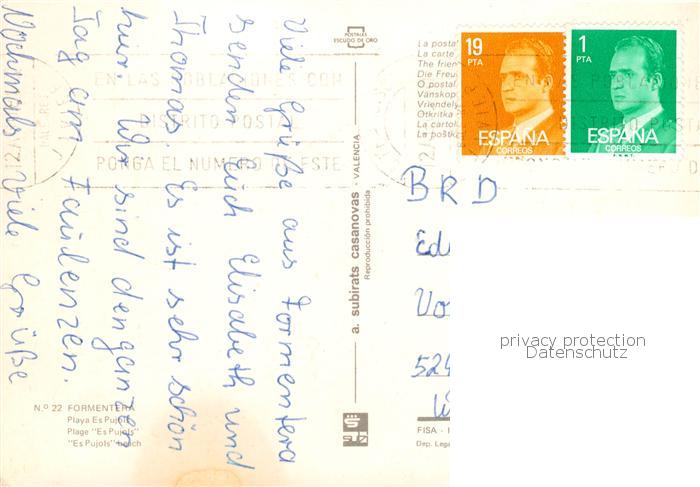 Viele Grüße aus Formentera
senden Euch Elisabeth und
Thomas. Es ist sehr schön
hier. Wir sind den ganzen
Tag am Faulenzen.
Nochmals Viele Grüße
POSTALES
ESCUDO DE ORO
La posta
La carte
The frien
Die Freu
O postal
Vänskop
Vriendely
Otkritka
La cartol
La poštka
19
PTA
ESPAÑA
CORREOS
1
PTA
ESPAÑA
CORREOS
EN LAS POBLACIONES CON
DISTRITO POSTAL
PONGA EL NUMERO DE ESTE
a. subirats casanovas - VALENCIA
Reproducción prohibida
BRD
Ed
Vo
524
privacy protection
Datenschutz
N.º 22 FORMENTERA
Playa Es Pujols
Plage "Es Pujols"
"Es Pujols" beach
FISA - I
Dep. Lega